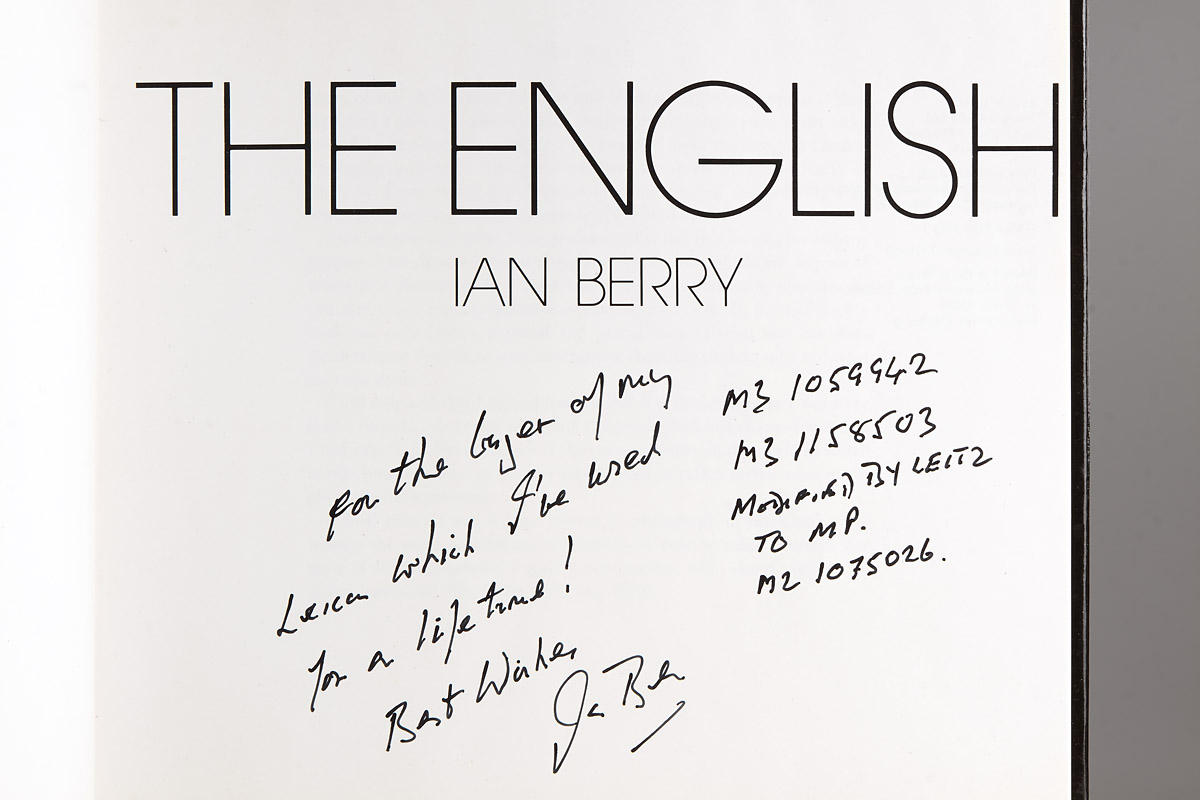 THE ENGLISH
IAN BERRY
for the buyer of my
Leicas which I've used
for a lifetime!
Best Wishes
Ian Berry
M3 1059942
M3 1158503
MODIFIED BY LEITZ
TO MP.
M2 1075026.